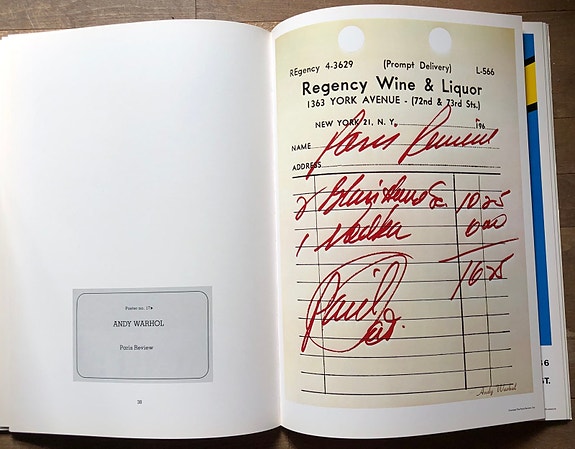 Poster no. 17
ANDY WARHOL
Paris Review
REgency 4-3629 (Prompt Delivery) L-566
Regency Wine & Liquor
1363 YORK AVENUE - (72nd & 73rd Sts.)
NEW YORK 21, N. Y. 196
NAME Paris Review
ADDRESS
2 10 25
1 Vodka 6 00
16 25
Paid
Andy Warhol
ST.